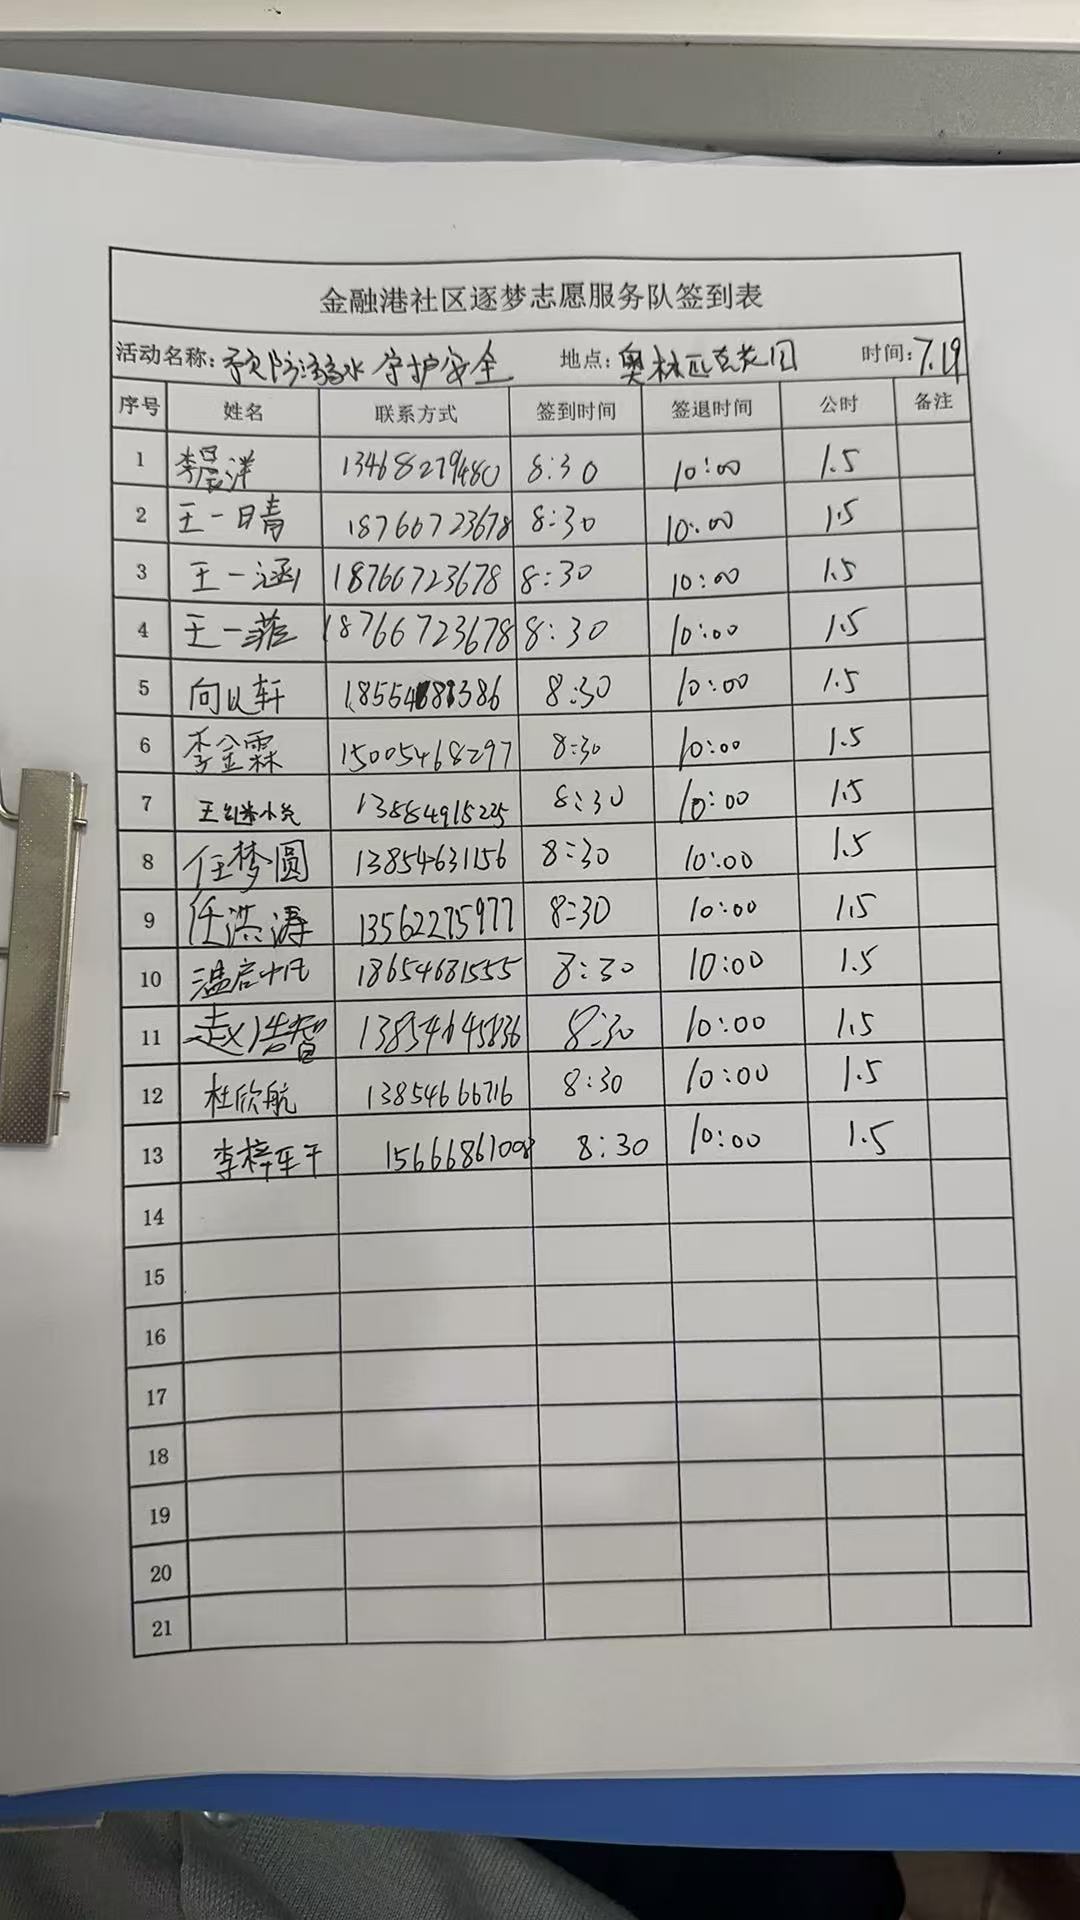 金融港社区逐梦志愿服务队签到表
活动名称: 预防溺水 守护安全 地点: 奥林匹克花园 时间: 7.19
序号 姓名 联系方式 签到时间 签退时间 公时 备注
1 李晨洋 13468279480 8:30 10:00 1.5
2 王一晴 18766723678 8:30 10:00 1.5
3 王一涵 18766723678 8:30 10:00 1.5
4 王一菲 18766723678 8:30 10:00 1.5
5 向以轩 8:30 10:00 1.5
6 李金霖 15005468297 8:30 10:00 1.5
7 13884915225 8:30 10:00 1.5
8 任梦圆 13854631156 8:30 10:00 1.5
9 任洪涛 13562275977 8:30 10:00 1.5
10 温启帆 18654681555 8:30 10:00 1.5
11 赵浩智 13854645836 8:30 10:00 1.5
12 杜欣航 13854666716 8:30 10:00 1.5
13 李梓轩 15666861008 8:30 10:00 1.5
14
15
16
17
18
19
20
21